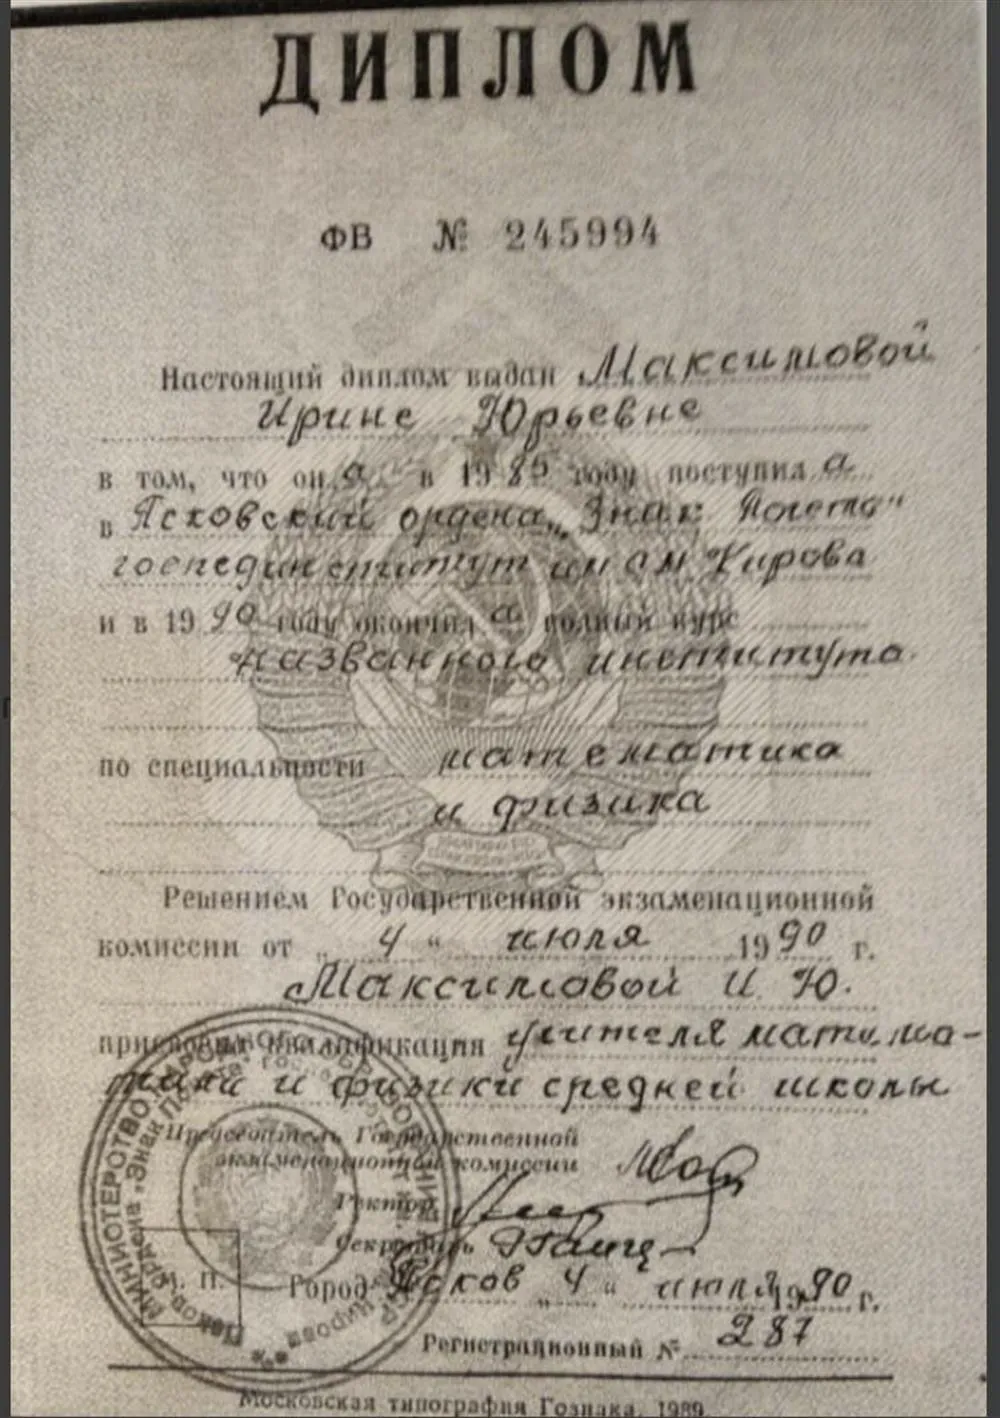 ДИПЛОМ
ФВ № 245994
Настоящий диплом выдан Максимовой
Ирине Юрьевне
в том, что он а в 1985 году поступил а
в Псковский ордена „Знак Почета"
госпединститут им С М Кирова
и в 1990 году окончил а полный курс
названного института
по специальности математика
и физика
Решением Государственной экзаменационной
комиссии от „4" июля 1990 г.
Максимовой И. Ю.
присвоена квалификация учителя матема-
тики и физики средней школы
Председатель Государственной
экзаменационной комиссии
Ректор
Секретарь
М. П. Город Псков „4" июля 1990 г.
Регистрационный № 287
Московская типография Гознака. 1989.